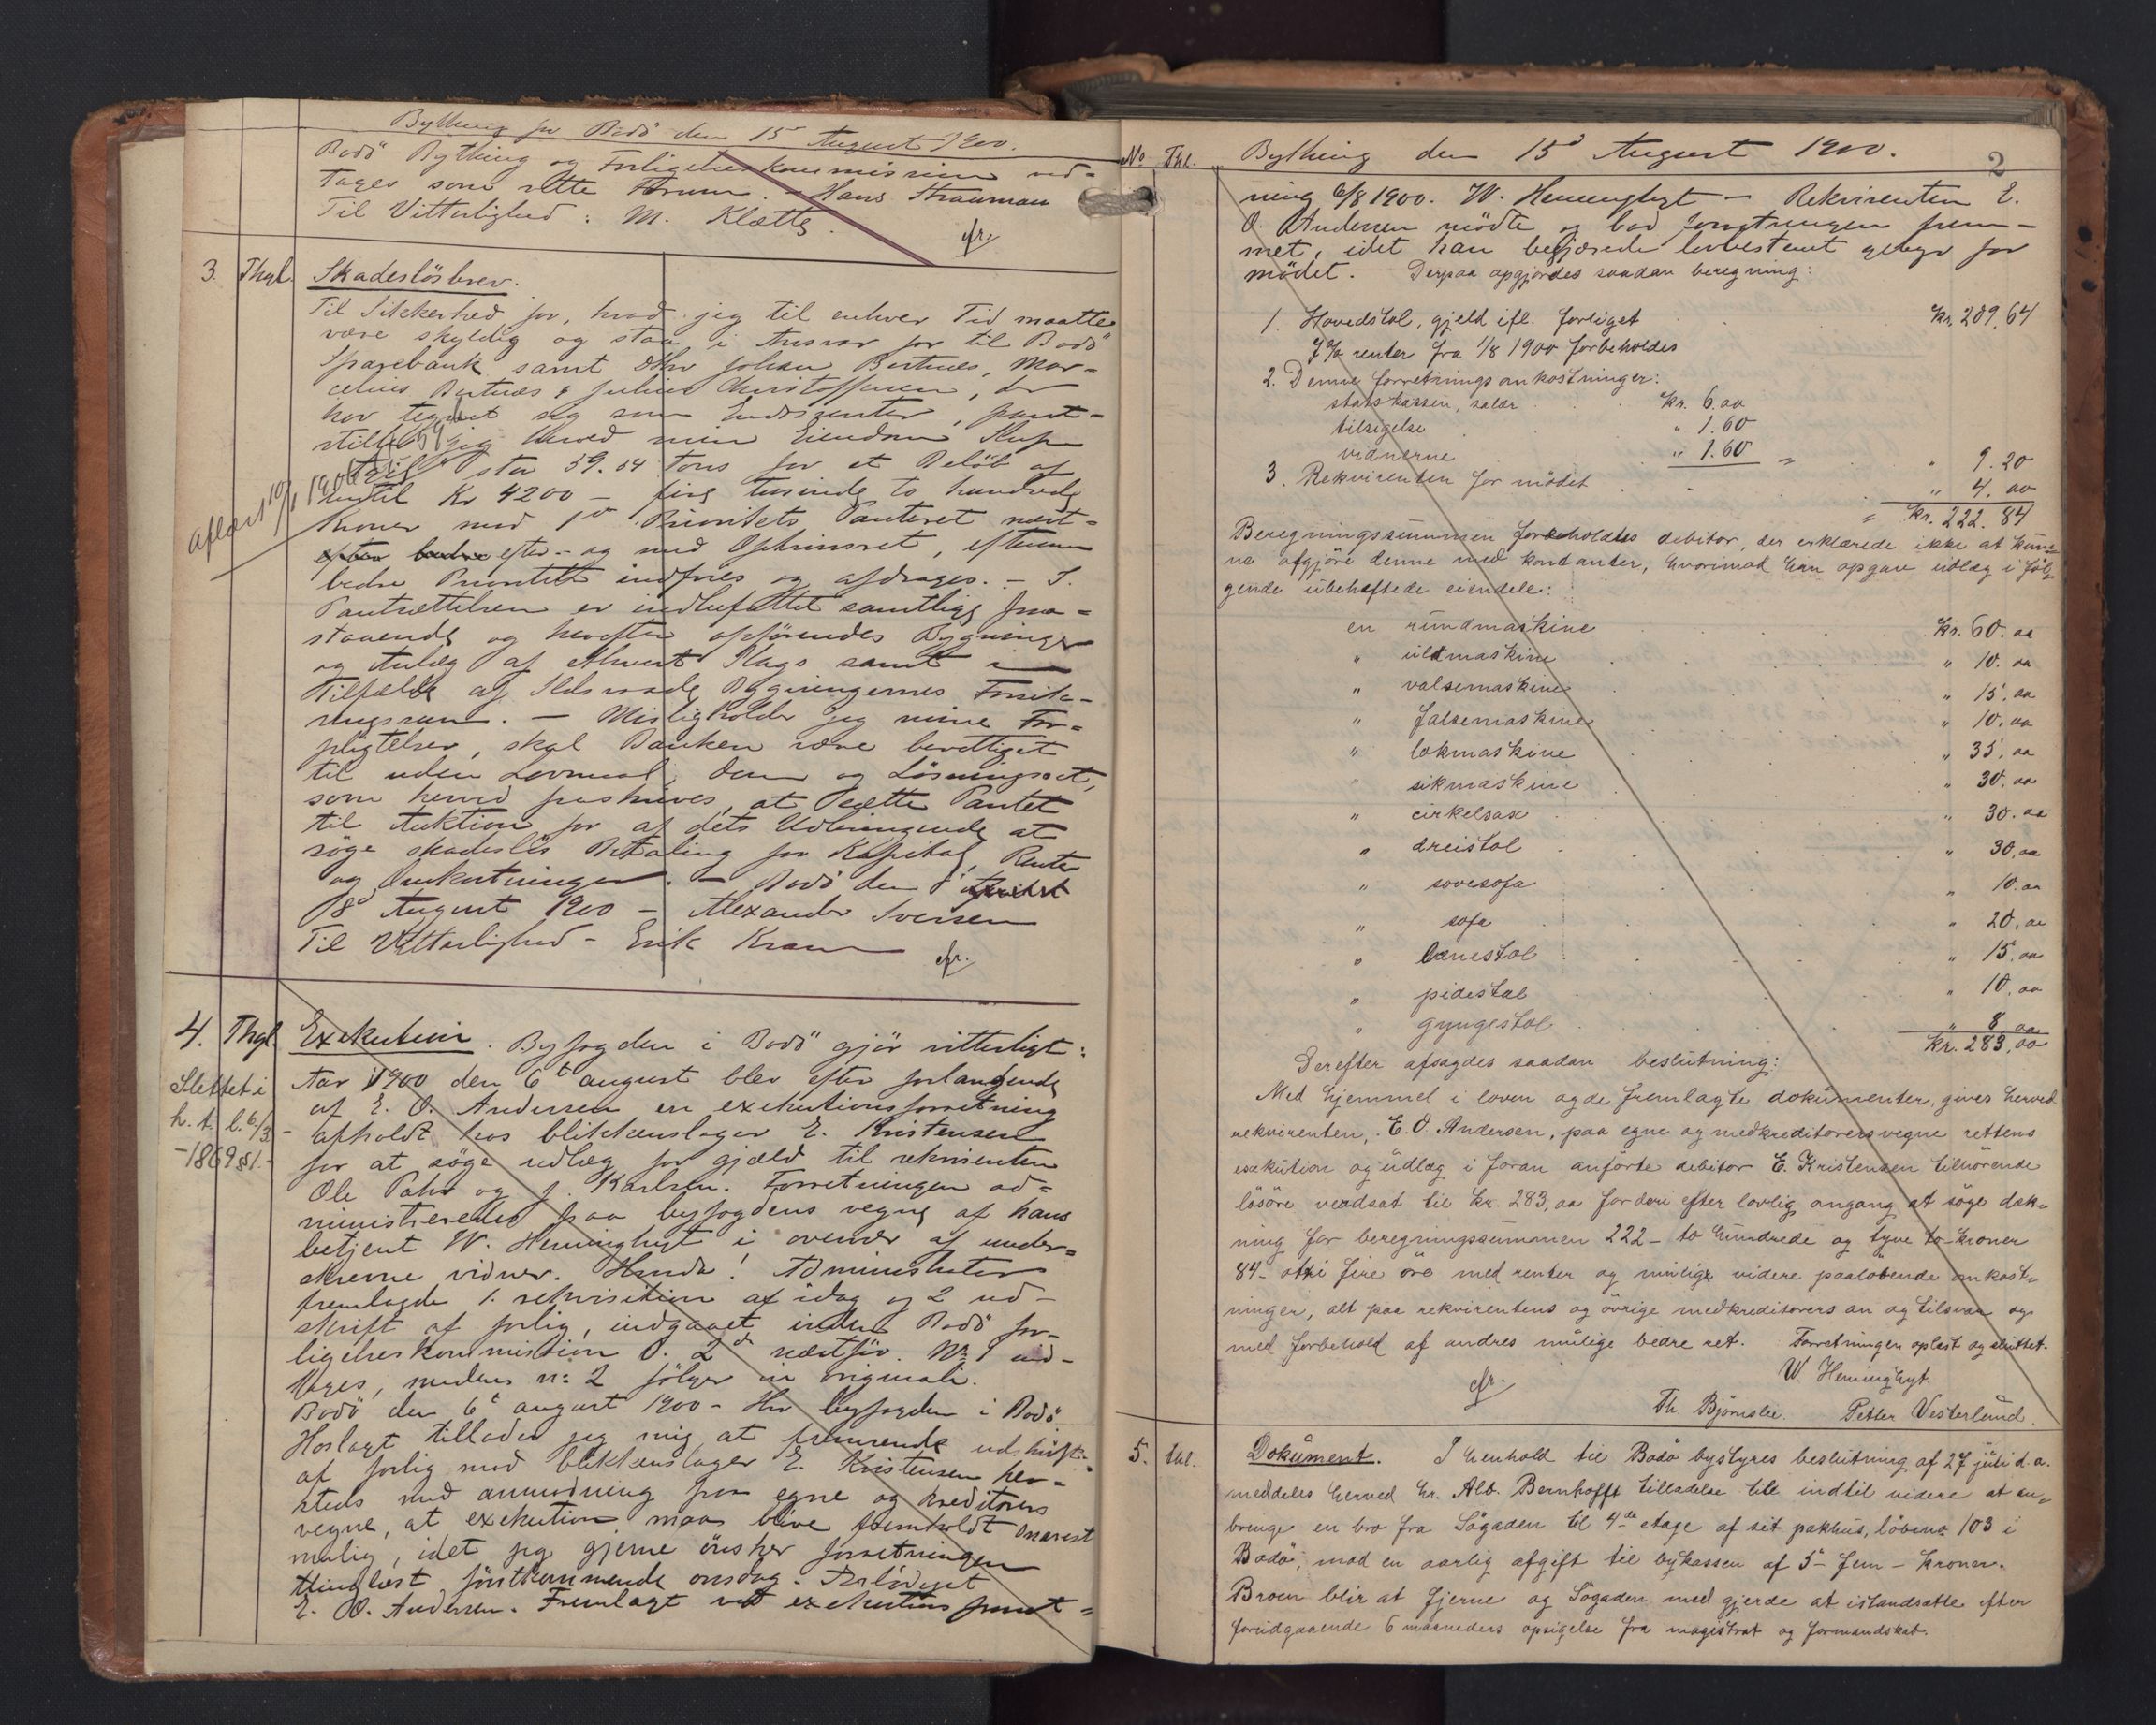 Bything for Bodö den 15d August 1900.
Bodö Bything og Forligelseskommission ved-
tages som rette Forum. - Hans Strauman
Til Vitterlighed: M. Klætte.
cfr.
3. Thgl. Skadeslösbrev.
Til Sikkerhed for, hvad jeg til enhver Tid maatte
være skyldig og staa i Ansvar for til Bodö
Sparebank samt Johan Bertnes, Mar-
celius Bertnæs & Julius Christoffersen, der
har tegnet sig som Endosenter, pant-
stiller jeg herved min Eiendom
stor 59.54 Tons for et Belöb af
indtil Kr 4200 - fire tusinde to hundrede
Kroner med 1ste Prioritets Panteret næst-
efter - og med Oprinsret, eftersom
bedre Prioriteter indfries og afdrages. - I
Pantsættelsen er indbefattet samtlige paa-
staaende og herefter opförendes Bygninger
og Anlæg af ethvert Slags samt i
Tilfælde af Ildsvaade Bygningernes Forsik-
ringssum. - Misligholder jeg mine For-
pligtelser, skal Banken være berettiget
til uden Lovmaal, Dom og Lösningsret,
som herved fraskrives, at sætte Pantet
til Auktion for af dets Udbringende at
söge skadeslös Betaling for Kapital, Renter
og Omkostninger. - Bodö den
8d August 1900 - Alexander Iversen
Til Vitterlighed - Erik Kram
cfr.
aflæst 10/1 1906
4. Thgl. Exekution. Byfogden i Bodö gjör vitterligt:
Slettet i
h. t. l. 6/3
-1869 §1.-
Aar 1900 den 6t august blev efter forlangende
af E. O. Andersen en exekutionsforretning
afholdt hos blikkenslager E. Kristensen
for at söge udlæg for gjæld til rekvirenten
Ole Pahr og J. Karlsen. Forretningen ad-
ministreredes paa byfogdens vegne af hans
betjent W. Heminghyt i overvær af under-
skrevne vidner. Hvorda! Administrator
fremlagde 1. rekvisition af idag og 2 ud-
skrift af forlig, indgaaet inden Bodö for-
ligelseskommission d. 2d næstför. No 1 ind-
tages, medens no 2 fölger in originali.
Bodö den 6t august 1900 - Hr byfogden i Bodö
Hoslagt tillader jeg mig at fremsende udskrift
af forlig mod blikkenslager E. Kristensen her-
steds med anmodning paa egne og kreditorers
vegne, at exekution maa blive fremholdt snarest
mulig, idet jeg gjerne önsker forretningen
thinglæst förstkommende onsdag. Ærbödigst
E. O. Andersen. Fremlagt ved exekutions forret-
No Thl. Bything den 15d August 1900. 2
ning 6/8 1900. W. Heminghyt - Rekvirenten E.
O. Andersen mödte og bad forretningen frem-
met, idet han begjærede lovbestemt gebyr for
mödet. Derpaa opgjordes saadan beregning:
1. Hovedstol, gjeld ifl. forliget kr. 209,64
7% renter fra 1/8 1900 forbeholdes
2. Denne forretnings omkostninger:
statskassen, salær kr. 6.00
tilsigelse " 1.60
vidnerne " 1.60 " 9.20
3. Rekvirenten for mödet " 4.00
kr. 222.84
Beregningssummen foreholdtes debitor, der erklærede ikke at kun-
ne afgjöre denne med kontanter, hvorimod han opgav udlæg i föl-
gende ubeheftede eiendele:
en rundmaskine kr. 60.00
" uldmaskine " 10.00
" valsemaskine " 15.00
" falsemaskine " 10.00
" lokmaskine " 35.00
" sikmaskine " 30.00
" cirkelsax " 30.00
" dreistol " 30,00
" sovesofa " 10.00
" sofa " 20,00
" lænestol " 15.00
" pidestal " 10,00
" gyngestol " 8 00
kr. 283,00
Derefter afsagdes saadan beslutning:
Med hjemmel i loven og de fremlagte dokumenter, gives herved
rekvirenten, E. O. Andersen, paa egne og medkreditorers vegne rettens
exekution og udlæg i foran anförte debitor E. Kristensen tilhörende
lösöre verdsat til kr. 283,00 for deri efter lovlig omgang at söge dæk-
ning for beregningssummen 222 - to hundrede og tyve to - kroner
84 - otti fire öre med renter og mulige videre paalöbende omkost-
ninger, alt paa rekvirentens og övrige medkreditorers an og tilsvar og
med forbehold af andres mulige bedre ret. Forretningen oplæst og sluttet.
W. Heminghyt.
cfr.
Th Björnslee. Petter Vesterlund.
5. thl. Dokument. I henhold til Bodö bystyres beslutning af 27 juli d. a.
meddeles herved hr. Alb. Bernhofft tilladelse til indtil videre at an-
bringe en bro fra Sögaden til 4de etage af sit pakhus, löbeno 103 i
Bodö, mod en aarlig afgift til bykassen af 5 - fem - kroner.
Broen blir at fjerne og Sögaden med gjerde at istandsætte efter
forudgaaende 6 maaneders opsigelse fra magistrat og formandskab.